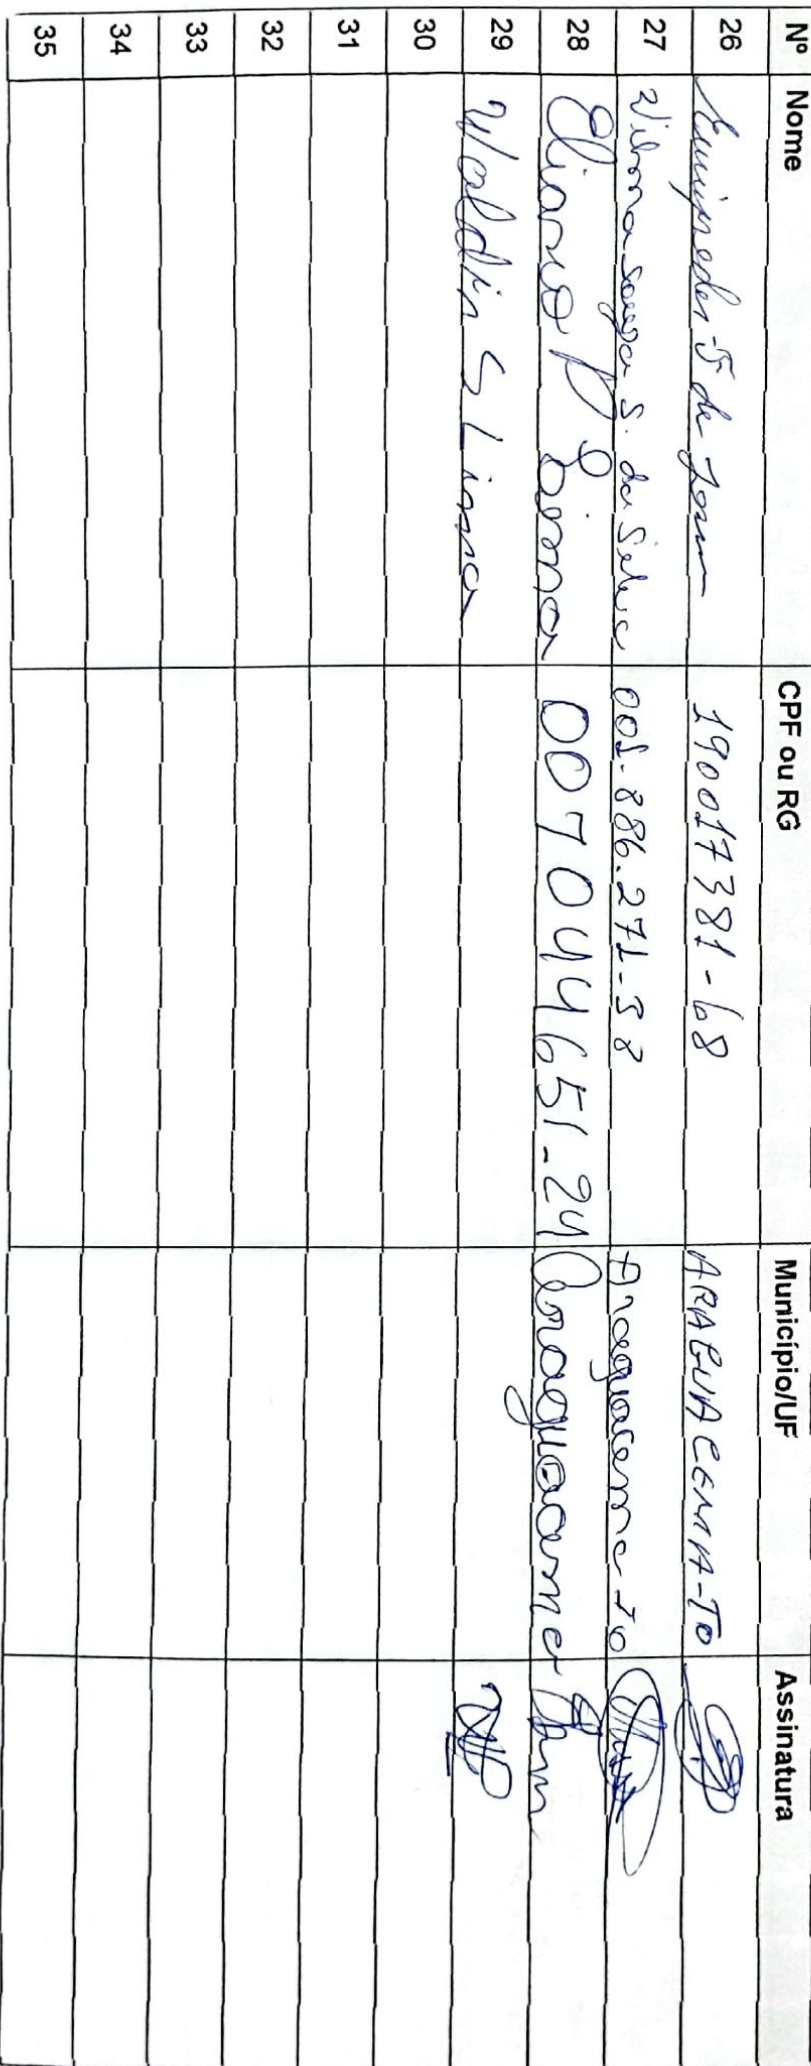 Nº Nome CPF ou RG Município/UF Assinatura
26 de 190017381-68 ARAGUACEMA-TO
27 Vilma Souza S. da Silva 001.886.271-58 Araguacema-To
28 Eliane P Lima 007044651-24 Araguacema
29 Waldir S Lima
30
31
32
33
34
35